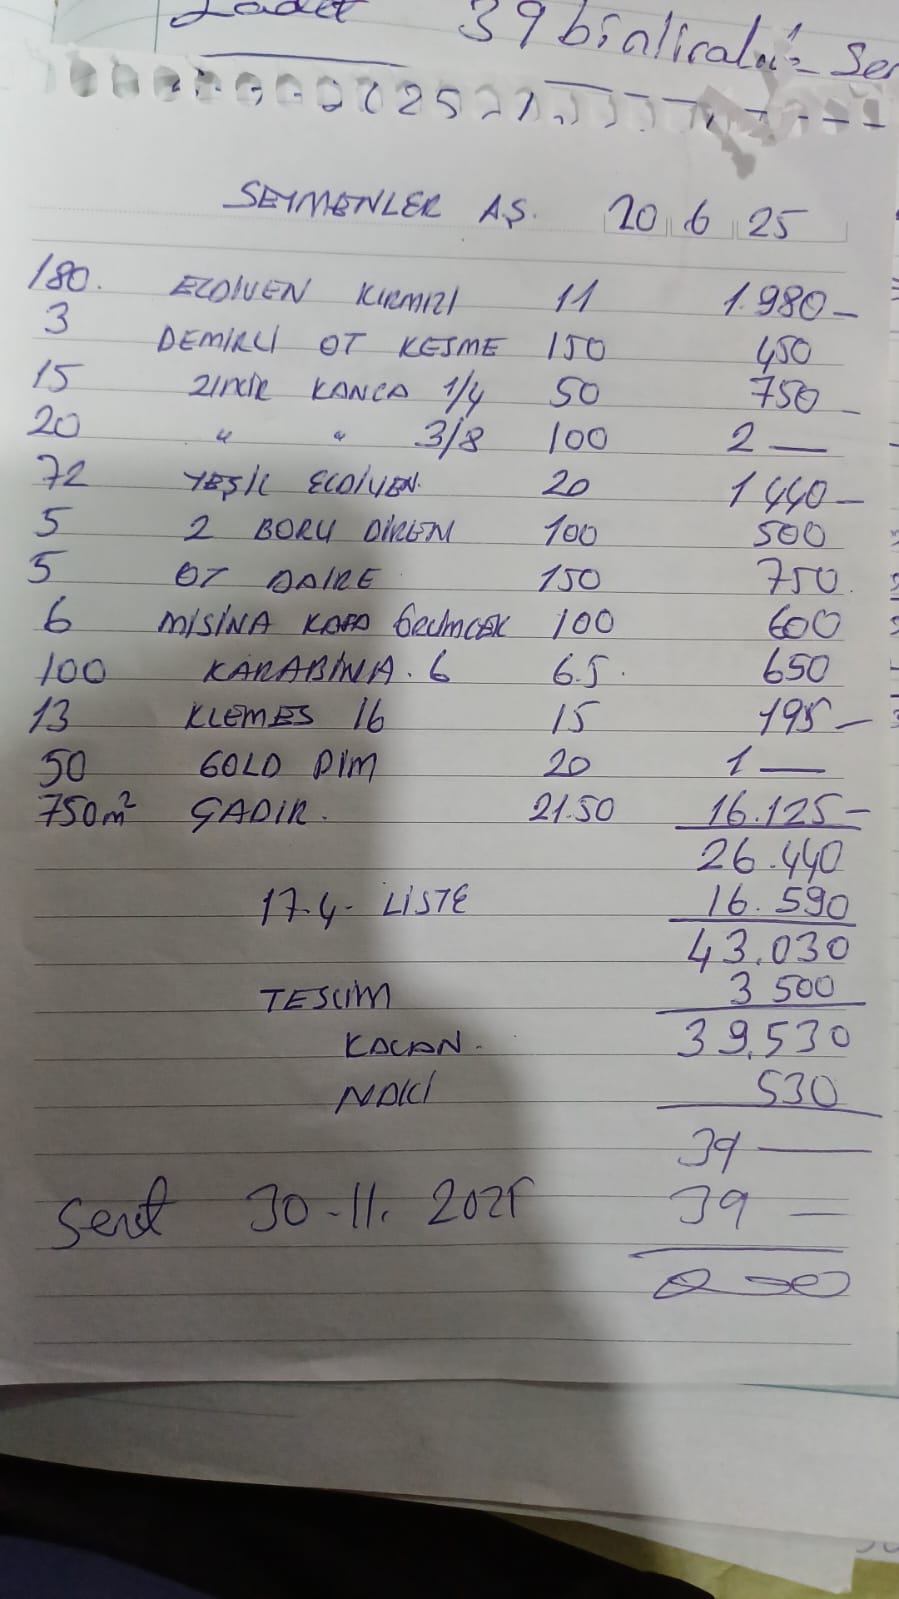 39 binliralık Sen
SEYMENLER A.Ş. 20 6 25
180. ELDİVEN KIRMIZI 11 1.980—
3 DEMİRLİ OT KESME 150 450
15 ZİNCİR KANCA 1/4 50 750
20 " " 3/8 100 2—
72 YEŞİL ELDİVEN. 20 1440—
5 2 BORU DİREM 100 500
5 OT DAİRE 150 750
6 MİSİNA KAFA 100 600
100 KARABİNA. 6 6.5. 650
13 KLEMES 16 15 195—
50 GOLD DİM 20 1—
750m² ÇADIR. 21.50 16.125—
26.440
17.4- LİSTE 16.590
43.030
TESLİM 3 500
KALAN. 39.530
NAKİ 530
39—
Senet 30-11. 2025 39—